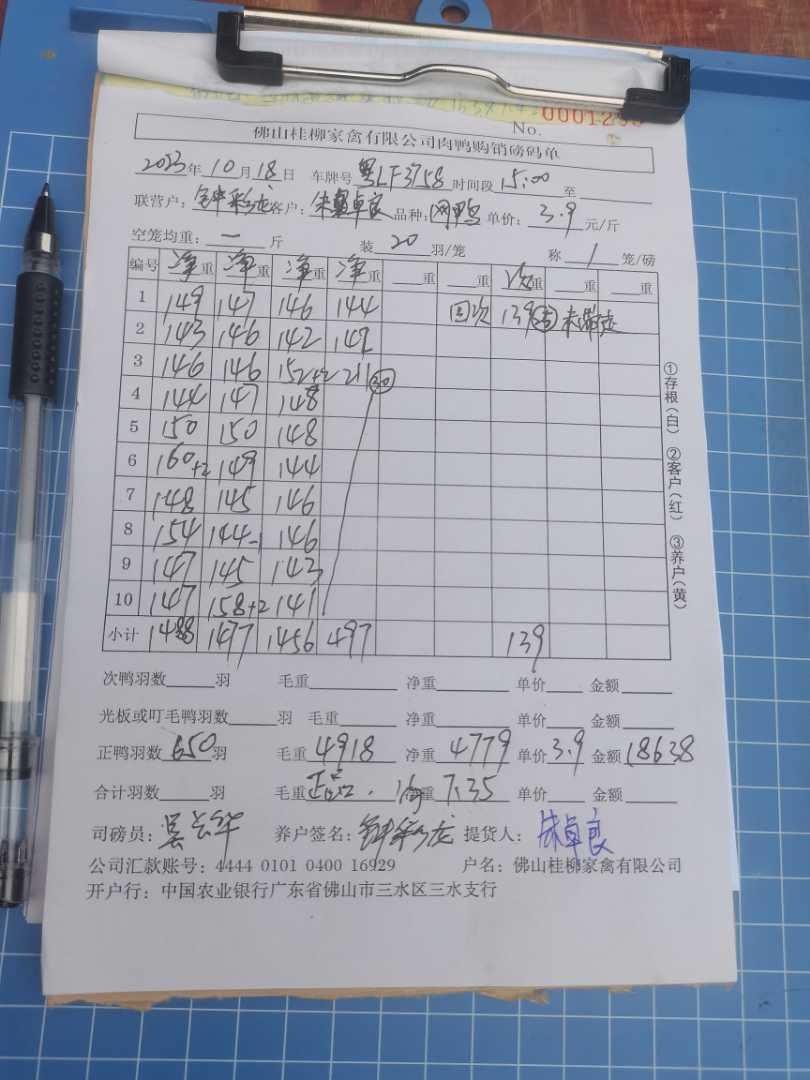 No. 00012
佛山桂柳家禽有限公司肉鸭购销磅码单
2023年10月18日 车牌号 粤LF3758 时间段 15:00 至
联营户: 钟彩龙 客户: 朱卓良 品种: 网鸭 单价: 3.9 元/斤
空笼均重: 一 斤 装 20 羽/笼 称 1 笼/磅
编号 净重 净重 净重 净重 重 重 次重 重 重
1 149 147 146 144 回次 139 未带走
2 143 146 142 142
3 146 146 152+2 211 30
4 144 147 148
5 150 150 148
6 160+2 149 144
7 148 145 146
8 154 144-1 146
9 147 145 143
10 147 158+2 141
小计 1488 1477 1456 497 139
次鸭羽数 羽 毛重 净重 单价 金额
光板或叮毛鸭羽数 羽 毛重 净重 单价 金额
正鸭羽数 650 羽 毛重 4918 净重 4779 单价 3.9 金额 18638
合计羽数 羽 毛重 净重 7.35 单价 金额
司磅员: 养户签名: 钟彩龙 提货人: 朱卓良
公司汇款账号: 4444 0101 0400 16929 户名: 佛山桂柳家禽有限公司
开户行: 中国农业银行广东省佛山市三水区三水支行
①存根(白) ②客户(红) ③养户(黄)